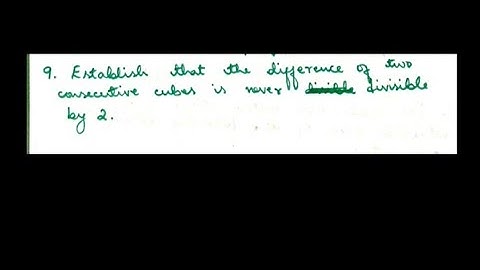 9. Establish that the difference of two
consecutive cubes is never divisible
by 2.